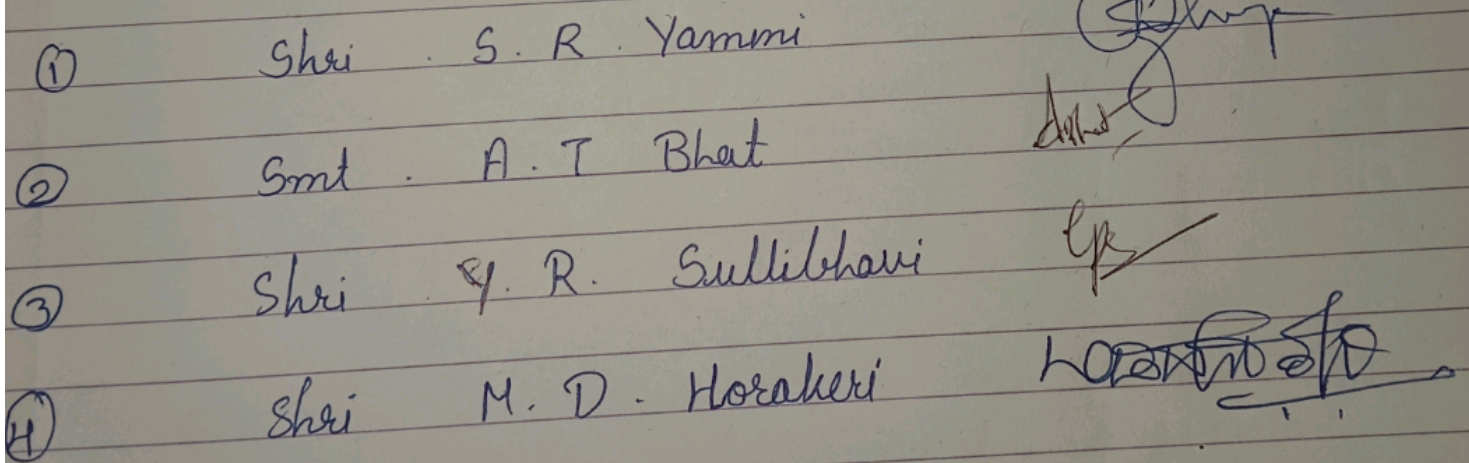 ① Shri . S. R. Yammi
② Smt . A. T Bhat
③ Shri . Y. R. Sullibhavi
④ Shri M. D. Horakeri